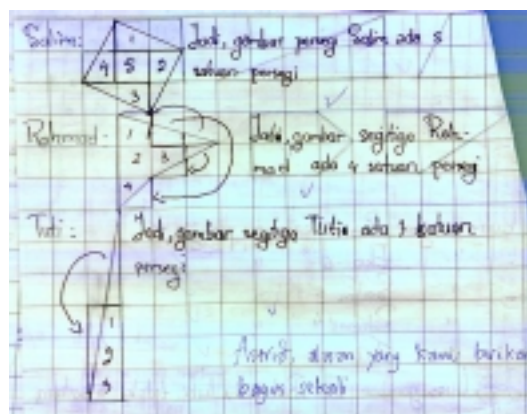 Salim: 1 Jadi, gambar persegi Salim ada 5
4 5 2 satuan persegi
3
Rohmad: 1 Jadi, gambar segitiga Roh-
2 3 mad ada 4 satuan persegi
4
Tuti: Jadi, gambar segitiga Tutia ada 3 satuan
persegi
1
2 Astrid, alasan yang kamu berikan
3 bagus sekali